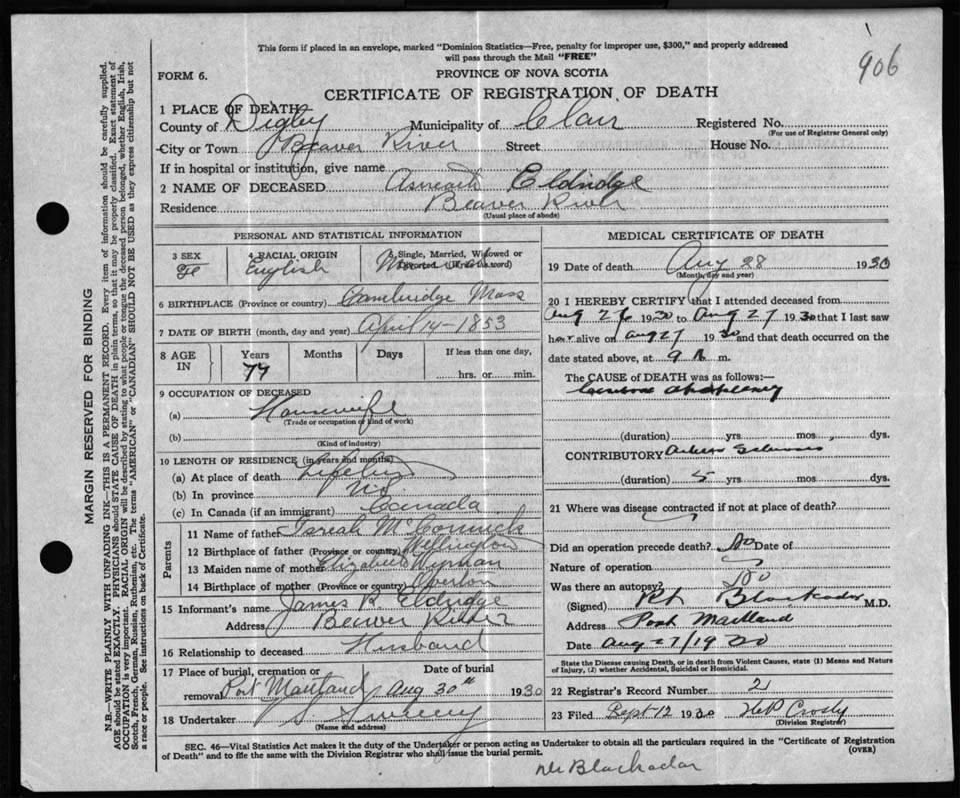 906
This form if placed in an envelope, marked "Dominion Statistics—Free, penalty for improper use, $300," and properly addressed
will pass through the Mail "FREE"
FORM 6.
PROVINCE OF NOVA SCOTIA
CERTIFICATE OF REGISTRATION OF DEATH
MARGIN RESERVED FOR BINDING
N.B.—WRITE PLAINLY WITH UNFADING INK—THIS IS A PERMANENT RECORD. Every item of information should be carefully supplied.
AGE should be stated EXACTLY. PHYSICIANS should STATE CAUSE OF DEATH in plain terms, so that it may be properly classified. Exact statement of
OCCUPATION is very important. RACIAL ORIGIN will be described by stating to what people or tongue the deceased person belonged, whether English, Irish,
Scotch, French, German, Russian, Ruthenian, etc. The terms "AMERICAN" or "CANADIAN" SHOULD NOT BE USED as they express citizenship but not
a race or people. See instructions on back of Certificate.
1 PLACE OF DEATH
County of Digby Municipality of Clare Registered No.
(For use of Registrar General only)
City or Town Beaver River Street House No.
If in hospital or institution, give name
2 NAME OF DECEASED Eldridge
Residence Beaver River
(Usual place of abode)
PERSONAL AND STATISTICAL INFORMATION
3 SEX Fe
4 RACIAL ORIGIN English
5 Single, Married, Widowed or Divorced (Write the word) Married
6 BIRTHPLACE (Province or country) Cambridge Mass
7 DATE OF BIRTH (month, day and year) April 14-1853
8 AGE IN Years 77 Months Days If less than one day, hrs. or min.
9 OCCUPATION OF DECEASED
(a) Housewife
(Trade or occupation or kind of work)
(b)
(Kind of industry)
10 LENGTH OF RESIDENCE (in years and months)
(a) At place of death Lifetime
(b) In province N.S.
(c) In Canada (if an immigrant) Canada
Parents
11 Name of father McCormick
12 Birthplace of father (Province or country) Wellington
13 Maiden name of mother Elizabeth Wyman
14 Birthplace of mother (Province or country) Overton
15 Informant's name James R. Eldridge
Address Beaver River
16 Relationship to deceased Husband
17 Place of burial, cremation or removal Port Maitland Date of burial Aug 30th 1930
18 Undertaker Sweeny
(Name and address)
MEDICAL CERTIFICATE OF DEATH
19 Date of death Aug 28 1930
(Month, day and year)
20 I HEREBY CERTIFY that I attended deceased from
Aug 26 1930 to Aug 27 1930 that I last saw
her alive on Aug 27 1930 and that death occurred on the
date stated above, at 9 m.
The CAUSE of DEATH was as follows:—
apoplexy
(duration) yrs. mos. dys.
CONTRIBUTORY Sclerosis
(duration) 5 yrs. mos. dys.
21 Where was disease contracted if not at place of death?
Did an operation precede death? No Date of
Nature of operation
Was there an autopsy? No
(Signed) Blackadar M.D.
Address Port Maitland
Date Aug 27/1930
State the Disease causing Death, or in death from Violent Causes, state (1) Means and Nature
of Injury, (2) whether Accidental, Suicidal or Homicidal.
22 Registrar's Record Number 2
23 Filed Sept 12 1930 Crosby
(Division Registrar)
SEC. 46—Vital Statistics Act makes it the duty of the Undertaker or person acting as Undertaker to obtain all the particulars required in the "Certificate of Registration
of Death" and to file the same with the Division Registrar who shall issue the burial permit. (OVER)
Dr Blackadar